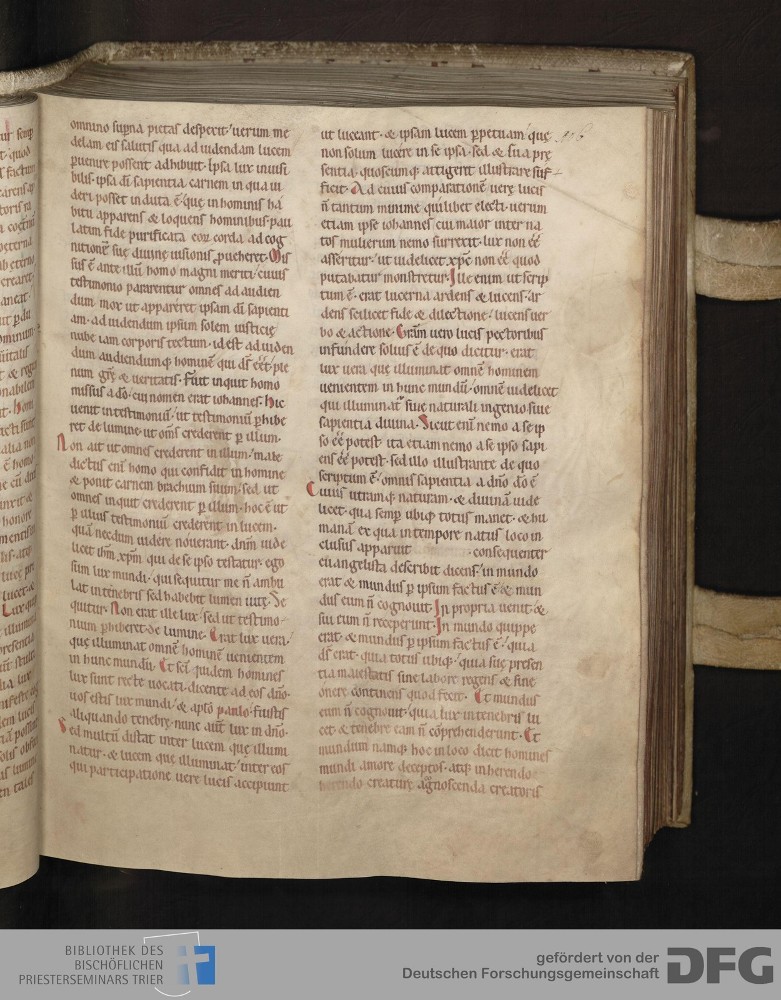 omnino sup̄na pietas desperit. uerum me
delam eis salutis qua ad uidendam lucem
ꝑuenire possent adhibuit. Ipsa lux inuisi
bilis. ipsa dī sapientia carnem in qua ui
deri posset induta ē. que in hominis ha
bitu apparens & loquens hominibus pau
latim fide purificata eoꝝ corda ad cog
nitionē sue diuine uisionis ꝓueheret. Mis
sus ē ante illū homo magni meriti. cuius
testimonio pararentur omnes ad audien
dum mox ut appareret ipsam dī sapienti
am. ad uidendum ipsum solem iusticie
nube iam corporis tectum. id est ad uiden
dum audiendumq; hominē qui dс̄ eēt. ple
num grē & ueritatis. Fuit inquit homo
missus a dō. cui nomen erat iohannes. Hic
uenit in testimoniū. ut testimoniū ꝑhibe
ret de lumine. ut om̄s crederent ꝑ illum.
Non ait ut omnes crederent in illum. male
dictus enī homo qui confidit in homine
& ponit carnem brachium suum. sed ut
omnes inquit crederent ꝑ illum. hoc ē ut
ꝑ illius testimoniū crederent in lucem.
quā necdum uidere nouerant. dnm̄ uide
licet ihm̄ xpm̄ qui de se ipso testatur. ego
sum lux mundi. qui sequitur me n̄ ambu
lat in tenebris sed habebit lumen uite. Se
quitur. Non erat ille lux. sed ut testimo
nium ꝑhiberet de lumine. Erat lux uera.
que illuminat omnem hominē uenientem
in hunc mundū. Et scī quidem homines
lux sunt recte uocati. dicente ad eos dn̄o.
uos estis lux mundi. & apłō paulo. Fuistis
aliquando tenebre. nunc aūt lux in dn̄o.
Sed multū distat inter lucem que illumi
natur. & lucem que illuminat. inter eos
qui participatione uere lucis accipiunt
ut luceant. & ipsam lucem ꝑpetuam que
116
non solum lucere in se ipsa. sed & sua pre
sentia quoscumq; attigerit illustrare suf
ficit. Ad cuius comparationē uere lucis
n̄ tantum minime quilibet electi. uerum
etiam ipse iohannes cui maior inter na
tos mulierum nemo surrexit. lux non eē
asseritur. ut uidelicet xpс̄ non eē quod
putabatur monstretur. Ille enim ut scrip
tum ē. erat lucerna ardens & lucens. ar
dens scilicet fide & dilectione. lucens uer
bo & actione. Grām uero lucis pectoribus
infundere solius ē de quo dicitur. erat
lux uera que illuminat omnē hominem
uenientem in hunc mundū. omnē uidelicet
qui illuminat̄ siue naturali ingenio siue
sapientia diuina. Sicut enī nemo a se ip
so eē potest. ita etiam nemo a se ipso sapi
ens eē potest. sed illo illustrante de quo
scriptum ē. omnis sapientia a dn̄o dō ē
Cuius utramq; naturam. & diuinā uide
licet. qua semꝑ ubiq; totus manet. & hu
manā ex qua in tempore natus loco in
clusus apparuit consequenter
euangelista describit dicens. in mundo
erat & mundus ꝑ ipsum factus ē. & mun
dus eum n̄ cognouit. In propria uenit &
sui eum n̄ receperunt. In mundo quippe
erat. & mundus ꝑ ipsum factus ē. quia
dс̄ erat. quia totus ubiq;. quia sue presen
tia maiestatis sine labore regens & sine
onere continens quod fecit. Et mundus
eum n̄ cognouit. quia lux in tenebris lu
cet & tenebre eam n̄ cōprehenderunt. Et
mundum namq; hoc in loco dicit homines
mundi amore deceptos. atq; inherendo
herendo creature agnoscenda creatoris
BIBLIOTHEK DES
BISCHÖFLICHEN
PRIESTERSEMINARS TRIER
gefördert von der
Deutschen Forschungsgemeinschaft
DFG